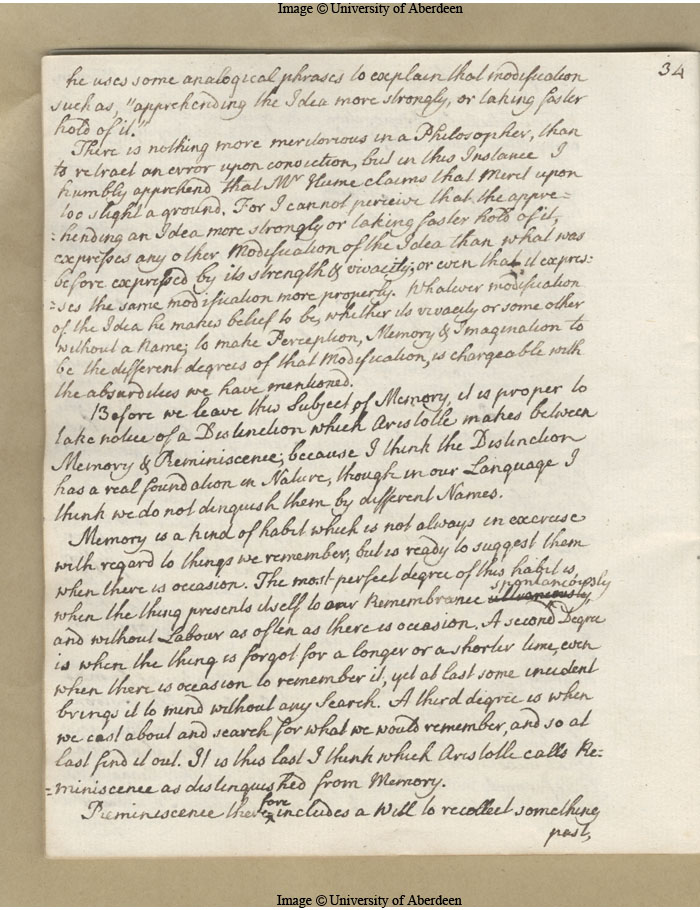 Image © University of Aberdeen
34
he uses some analogical phrases to explain that modification
such as, "apprehending the Idea more strongly, or taking faster
hold of it."
There is nothing more meritorious in a Philosopher, than
to retract an error upon conviction, but in this Instance I
humbly apprehend that Mr Hume claims that Merit upon
too slight a ground. For I cannot perceive that the appre=
=hending an Idea more strongly or taking faster hold of it,
expresses any other Modification of the Idea than what was
before expressed by its strength & vivacity; or even that it expres=
=ses the same modification more properly. Whatever modification
of the Idea he makes belief to be, whether its vivacity or some other
without a Name; to make Perception, Memory & Imagination to
be the different degrees of that Modification, is chargeable with
the absurdities we have mentioned.
Before we leave this Subject of Memory, it is proper to
take notice of a Distinction which Aristotle makes between
Memory & Reminiscence, because I think the Distinction
has a real foundation in Nature, though in our Language I
think we do not dinguish them by different Names.
Memory is a kind of habit which is not always in exercise
with regard to things we remember, but is ready to suggest them
when there is occasion. The most perfect degree of this habit is,
spontaneously
when the thing presents itself to our Remembrance
and without Labour as often as there is occasion. A second Degree
is when the thing is forgot for a longer or a shorter time, even
when there is occasion to remember it, yet at last some incident
brings it to mind without any Search. A third degree is when
we cast about and search for what we would remember, and so at
last find it out. It is this last I think which Aristotle calls Re=
=miniscence as distinguished from Memory.
fore
Reminiscence there includes a Will to recollect something
past,
Image © University of Aberdeen